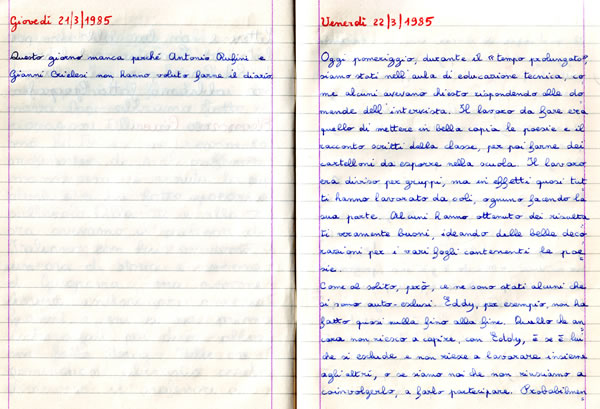 Giovedì 21/3/1985
Questo giorno manca perché Antonio Rufini e
Gianni Brelesi non hanno voluto farne il diario.
Venerdì 22/3/1985
Oggi pomeriggio, durante il "tempo prolungato"
siamo stati nell'aula di educazione tecnica, co
me alcuni avevano chiesto rispondendo alle do
mande dell'intervista. Il lavoro da fare era
quello di mettere in bella copia le poesie e il
racconto scritti della classe, per poi farne dei
cartelloni da esporre nella scuola. Il lavoro
era diviso per gruppi, ma in effetti quasi tut
ti hanno lavorato da soli, ognuno facendo la
sua parte. Alcuni hanno ottenuto dei risulta
ti veramente buoni, ideando delle belle deco
razioni per i vari fogli contenenti le poe
sie.
Come al solito, però, ce ne sono stati alcuni che
si sono auto-esclusi. Eddy, per esempio, non ha
fatto quasi nulla fino alla fine. Quello che an
cora non riesco a capire, con Eddy, è se è lui
che si esclude e non riesce a lavorare insieme
agli altri, o se siamo noi che non riusciamo a
coinvolgerlo, a farlo partecipare. Probabilmen